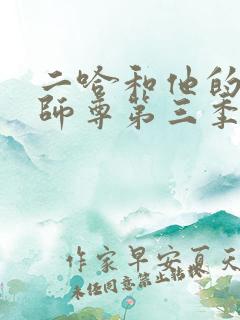 二哈和他的
師尊第三季
作家早安夏天
未经同意禁止转载